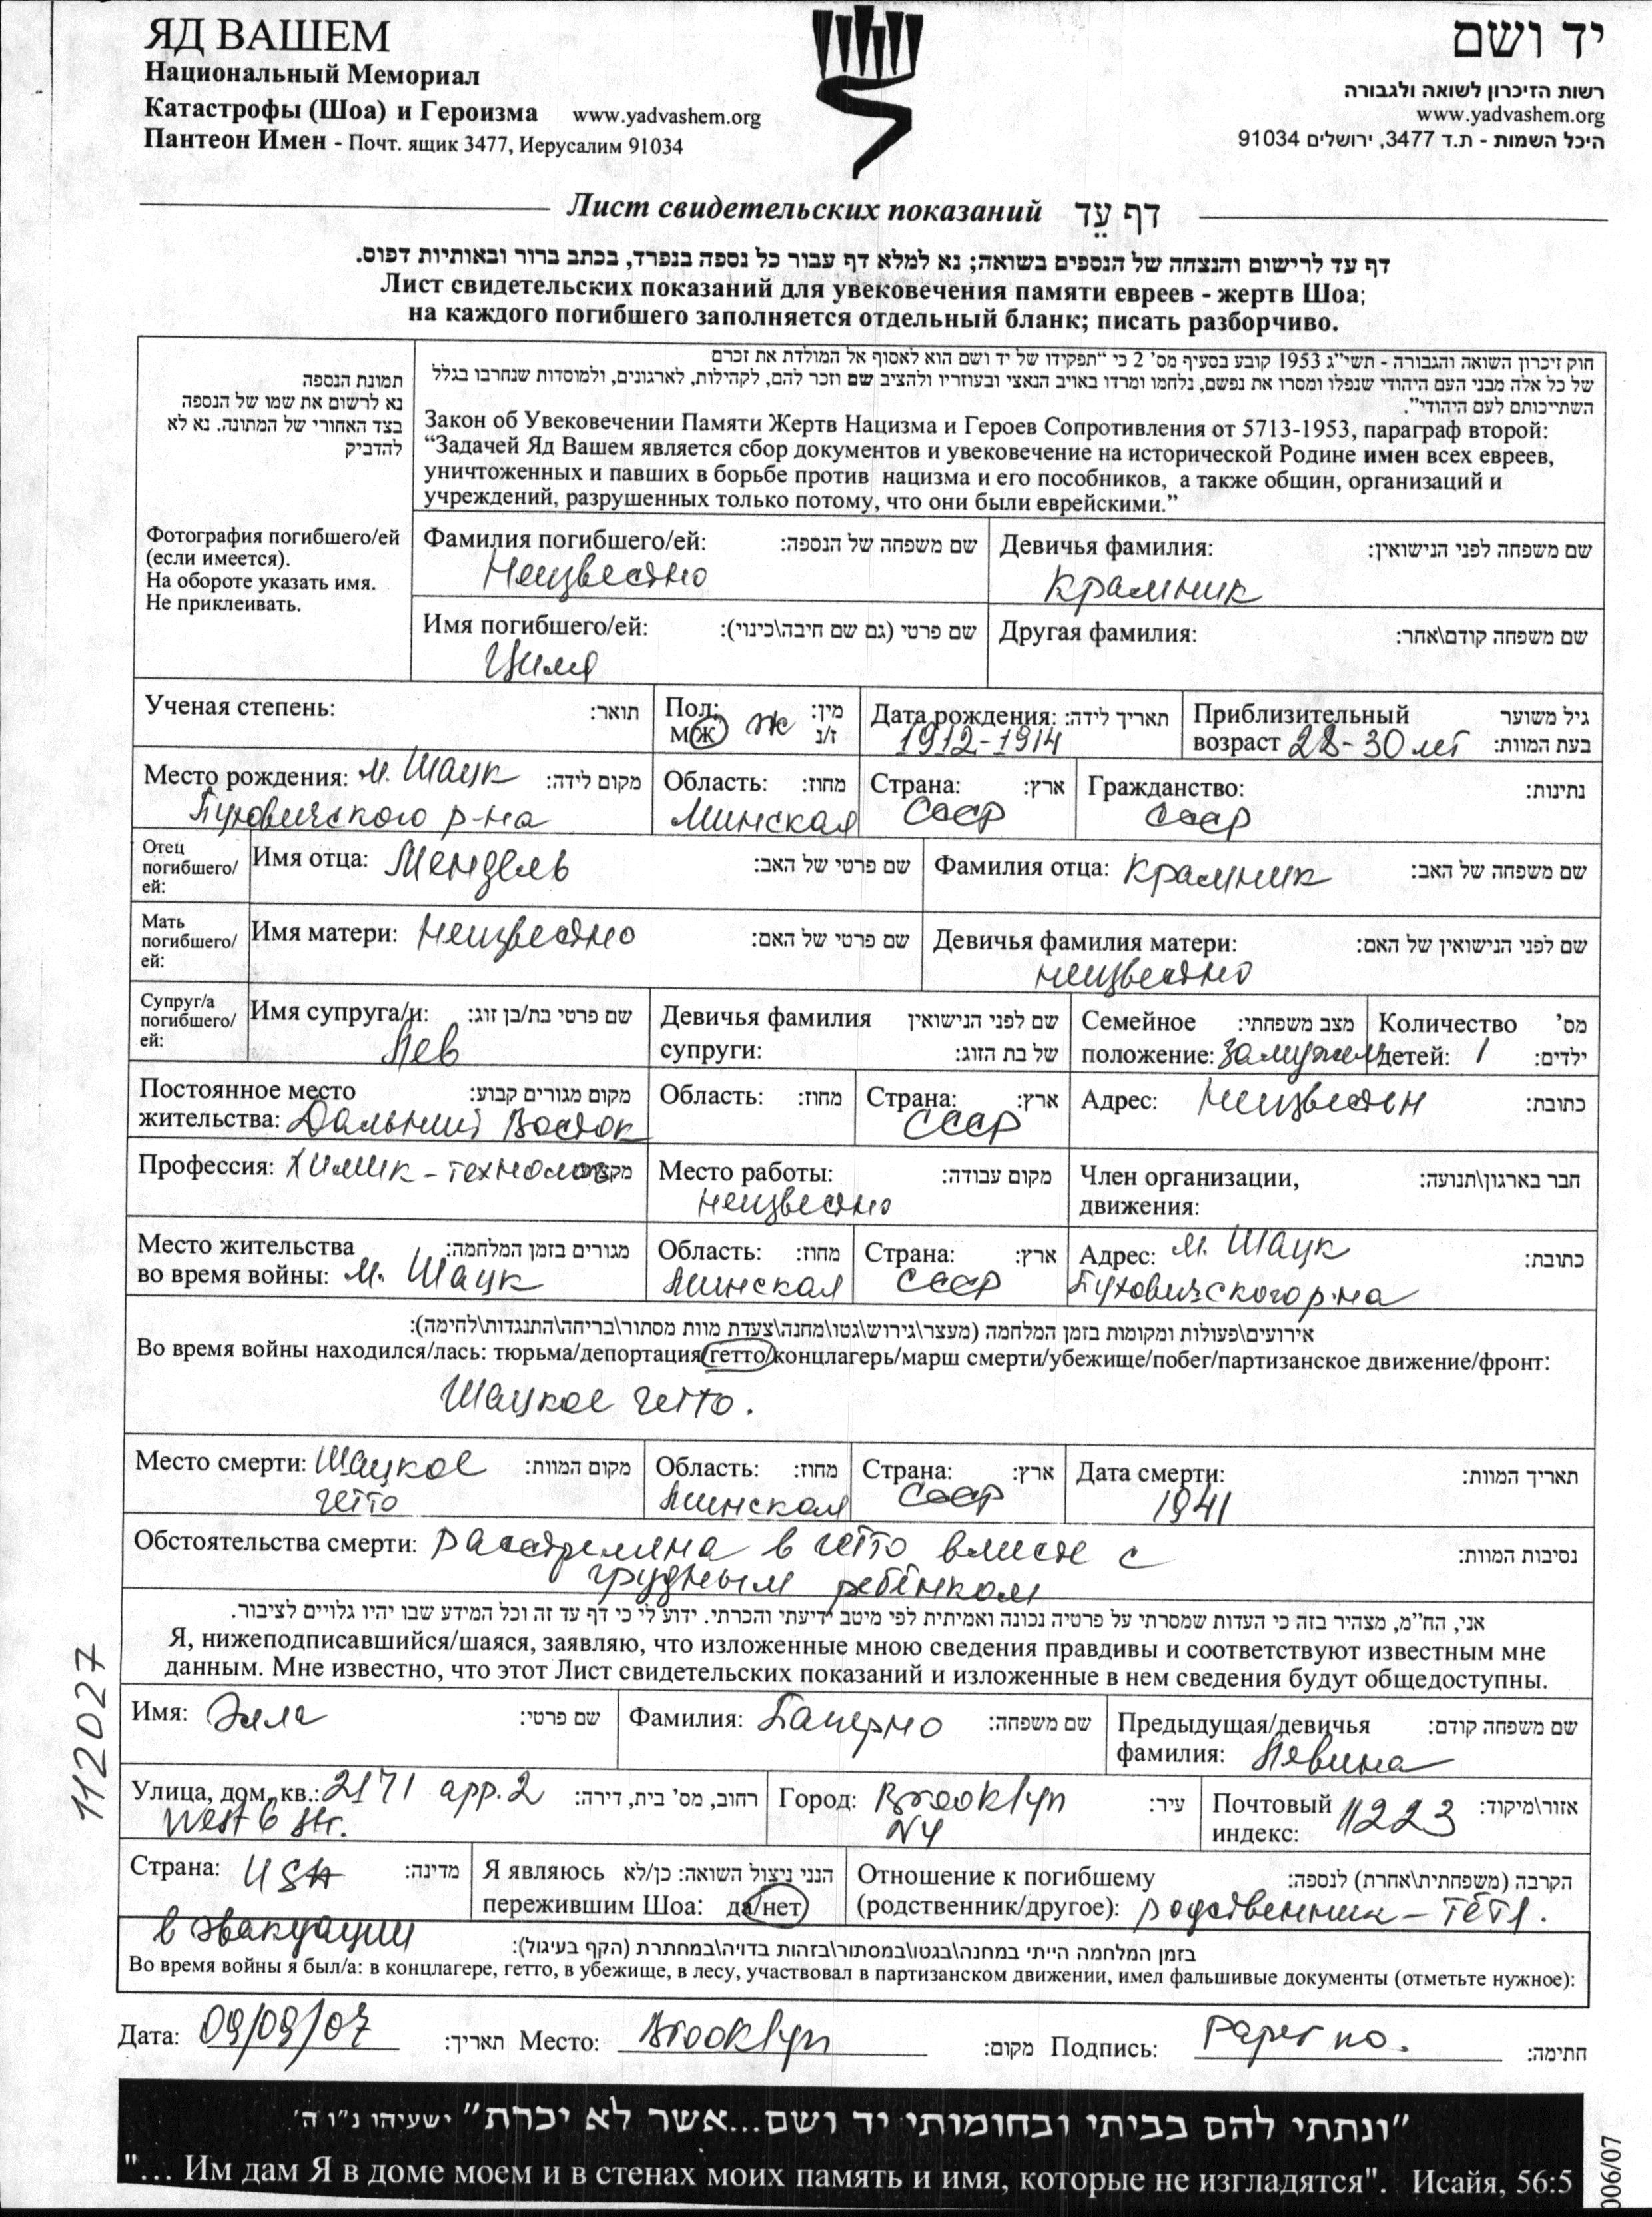 ЯД ВАШЕМ
Национальный Мемориал
Катастрофы (Шоа) и Героизма www.yadvashem.org
Пантеон Имен - Почт. ящик 3477, Иерусалим 91034
יד ושם
רשות הזיכרון לשואה ולגבורה
www.yadvashem.org
היכל השמות - ת.ד 3477, ירושלים 91034
Лист свидетельских показаний דף עֵד
דף עד לרישום והנצחה של הנספים בשואה; נא למלא דף עבור כל נספה בנפרד, בכתב ברור ובאותיות דפוס.
Лист свидетельских показаний для увековечения памяти евреев - жертв Шоа;
на каждого погибшего заполняется отдельный бланк; писать разборчиво.
תמונת הנספה
נא לרשום את שמו של הנספה
בצד האחורי של המתונה. נא לא
להדביק
Фотография погибшего/ей
(если имеется).
На обороте указать имя.
Не приклеивать.
חוק זיכרון השואה והגבורה - תשי"ג 1953 קובע בסעיף מס' 2 כי "תפקידו של יד ושם הוא לאסוף אל המולדת את זכרם
של כל אלה מבני העם היהודי שנפלו ומסרו את נפשם, נלחמו ומרדו באויב הנאצי ובעוזריו ולהציב שם וזכר להם, לקהילות, לארגונים, ולמוסדות שנחרבו בגלל
השתייכותם לעם היהודי".
Закон об Увековечении Памяти Жертв Нацизма и Героев Сопротивления от 5713-1953, параграф второй:
“Задачей Яд Вашем является сбор документов и увековечение на исторической Родине имен всех евреев,
уничтоженных и павших в борьбе против нацизма и его пособников, а также общин, организаций и
учреждений, разрушенных только потому, что они были еврейскими.”
Фамилия погибшего/ей: שם משפחה של הנספה: Девичья фамилия: שם משפחה לפני הנישואין:
Неизвестно Крамник
Имя погибшего/ей: שם פרטי (גם שם חיבה\כינוי): Другая фамилия: שם משפחה קודם\אחר:
Циля
Ученая степень: תואר: Пол: מין: Дата рождения: תאריך לידה: Приблизительный גיל משוער
м/ж ж ז/נ 1912-1914 возраст 28-30 лет בעת המוות:
Место рождения: м. Шацк מקום לידה: Область: מחוז: Страна: ארץ: Гражданство: נתינות:
Пуховичского р-на Минская СССР СССР
Отец
погибшего/
ей:
Имя отца: Мендель שם פרטי של האב: Фамилия отца: Крамник שם משפחה של האב:
Мать
погибшего/
ей:
Имя матери: Неизвестно שם פרטי של האם: Девичья фамилия матери: שם לפני הנישואין של האם:
неизвестно
Супруг/а
погибшего/
ей:
Имя супруга/и: שם פרטי בת/בן זוג: Девичья фамилия שם לפני הנישואין Семейное מצב משפחתי: Количество מס'
Лев супруги: של בת הזוג: положение: замужем детей: 1 ילדים:
Постоянное место מקום מגורים קבוע: Область: מחוז: Страна: ארץ: Адрес: Неизвестен כתובת:
жительства: Дальний Восток СССР
Профессия: Химик-технолог מקצוע: Место работы: מקום עבודה: Член организации, חבר בארגון\תנועה:
неизвестно движения:
Место жительства מגורים בזמן המלחמה: Область: מחוז: Страна: ארץ: Адрес: м. Шацк כתובת:
во время войны: м. Шацк Минская СССР Пуховичского р-на
אירועים\פעולות ומקומות בזמן המלחמה (מעצר\גירוש\גטו\מחנה\צעדת מוות מסתור\בריחה\התנגדות\לחימה):
Во время войны находился/лась: тюрьма/депортация/гетто/концлагерь/марш смерти/убежище/побег/партизанское движение/фронт:
Шацкое гетто.
Место смерти: Шацкое מקום המוות: Область: מחוז: Страна: ארץ: Дата смерти: תאריך המוות:
гетто Минская СССР 1941
Обстоятельства смерти: Расстреляна в гетто вместе с נסיבות המוות:
грудным ребёнком
אני, הח"מ, מצהיר בזה כי העדות שמסרתי על פרטיה נכונה ואמיתית לפי מיטב ידיעתי והכרתי. ידוע לי כי דף עד זה וכל המידע שבו יהיו גלויים לציבור.
Я, нижеподписавшийся/шаяся, заявляю, что изложенные мною сведения правдивы и соответствуют известным мне
данным. Мне известно, что этот Лист свидетельских показаний и изложенные в нем сведения будут общедоступны.
Имя: Элла שם פרטי: Фамилия: Паперно שם משפחה: Предыдущая/девичья שם משפחה קודם:
фамилия: Левина
Улица, дом, кв.: 2171 app.2 רחוב, מס' בית, דירה: Город: Brooklyn עיר: Почтовый 11223 אזור\מיקוד:
West 6 str. NY индекс:
Страна: USA מדינה: Я являюсь הנני ניצול השואה: כן/לא Отношение к погибшему הקרבה (משפחתית\אחרת) לנספה:
пережившим Шоа: да/нет (родственник/другое): родственник - тётя.
в эвакуации
בזמן המלחמה הייתי במחנה\בגטו\במסתור\בזהות בדויה\במחתרת (הקף בעיגול):
Во время войны я был/а: в концлагере, гетто, в убежище, в лесу, участвовал в партизанском движении, имел фальшивые документы (отметьте нужное):
Дата: 09/09/07 תאריך: Место: Brooklyn מקום: Подпись: Paperno. חתימה:
"ונתתי להם בביתי ובחומותי יד ושם...אשר לא יכרת" ישעיהו נ"ו ה'
"... Им дам Я в доме моем и в стенах моих память и имя, которые не изгладятся". Исайя, 56:5
112027
006/07